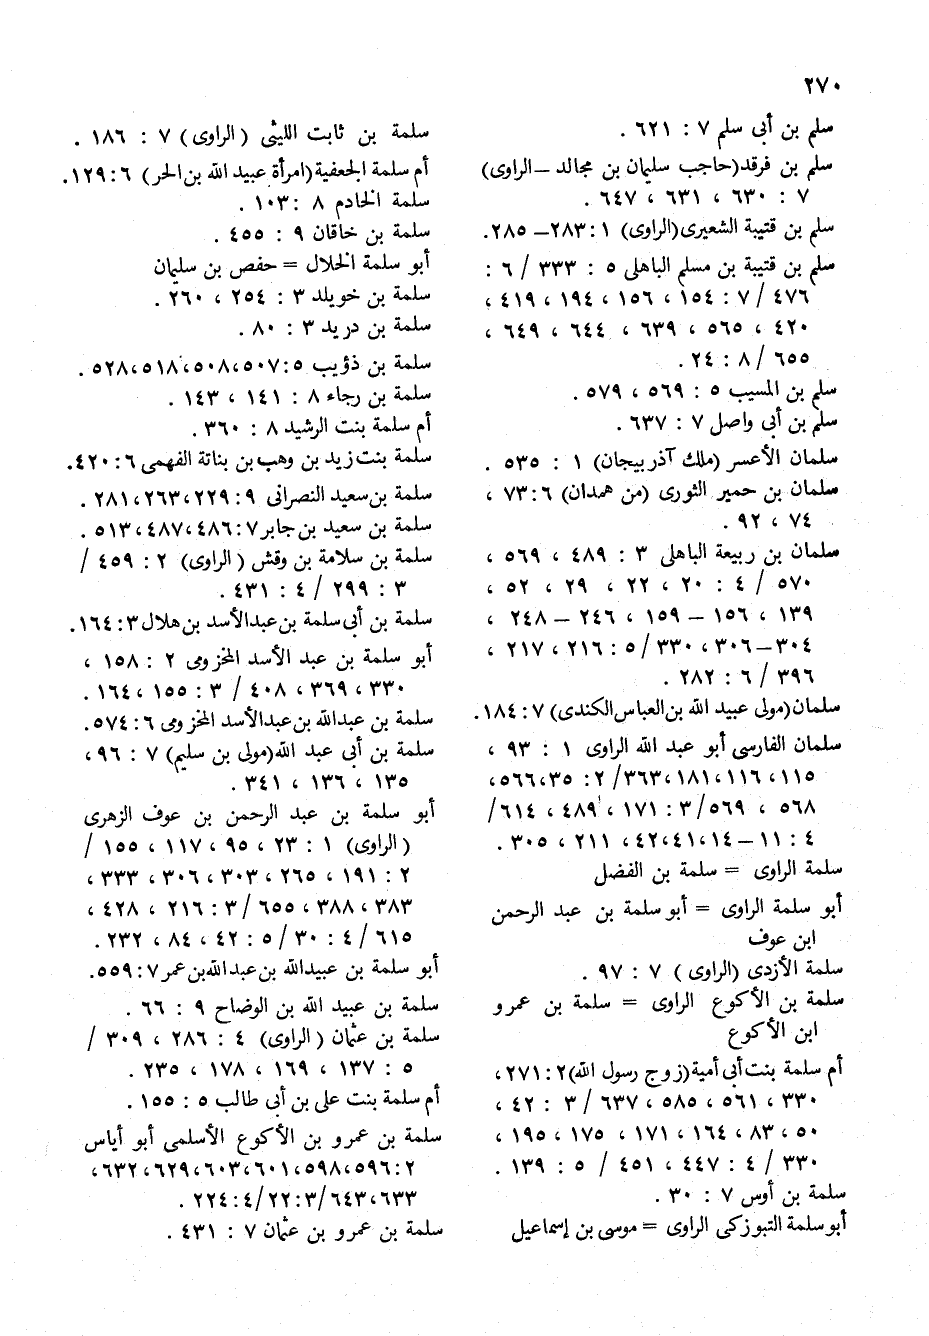 ٢٧٠
سلم بن أبى سلم ٧ : ٦٢١ .
سلم بن فرقد(حاجب سليمان بن مجالد – الراوى)
٧ : ٦٣٠ ، ٦٣١ ، ٦٤٧ .
سلم بن قتيبة الشعيرى(الراوى) ١ : ٢٨٣ – ٢٨٥.
سلم بن قتيبة بن مسلم الباهلى ٥ : ٣٣٣ / ٦ :
٤٧٦ / ٧ : ١٥٤ ، ١٥٦ ، ١٩٤ ، ٤١٩ ،
٤٢٠ ، ٥٦٥ ، ٦٣٩ ، ٦٤٤ ، ٦٤٩ ،
٦٥٥ / ٨ : ٢٤ .
سلم بن المسيب ٥ : ٥٦٩ ، ٥٧٩ .
سلم بن أبى واصل ٧ : ٦٣٧ .
سلمان الأعسر (ملك آذربيجان) ١ : ٥٣٥ .
سلمان بن حمير الثورى (من همدان) ٦ : ٧٣ ،
٧٤ ، ٩٢ .
سلمان بن ربيعة الباهلى ٣ : ٤٨٩ ، ٥٦٩ ،
٥٧٠ / ٤ : ٢٠ ، ٢٢ ، ٢٩ ، ٥٢ ،
١٣٩ ، ١٥٦ – ١٥٩ ، ٢٤٦ – ٢٤٨ ،
٣٠٤ – ٣٠٦ ، ٣٣٠ / ٥ : ٢١٦ ، ٢١٧ ،
٣٩٦ / ٦ : ٢٨٢ .
سلمان(مولى عبيد الله بن العباس الكندى) ٧ : ١٨٤.
سلمان الفارسى أبو عبد الله الراوى ١ : ٩٣ ،
١١٥ ، ١١٦ ، ١٨١ ، ٣٦٣ / ٢ : ٣٥ ، ٥٦٦ ،
٥٦٨ ، ٥٦٩ / ٣ : ١٧١ ، ٤٨٩ ، ٦١٤ /
٤ : ١١ – ١٤ ، ٤١ ، ٤٢ ، ٢١١ ، ٣٠٥ .
سلمة الراوى = سلمة بن الفضل
أبو سلمة الراوى = أبو سلمة بن عبد الرحمن
ابن عوف
سلمة الأزدى (الراوى) ٧ : ٩٧ .
سلمة بن الأكوع الراوى = سلمة بن عمرو
ابن الأكوع
أم سلمة بنت أبى أمية(زوج رسول الله) ٢ : ٢٧١ ،
٣٣٠ ، ٥٦١ ، ٥٨٥ ، ٦٣٧ / ٣ : ٤٢ ،
٥٠ ، ٨٣ ، ١٦٤ ، ١٧١ ، ١٧٥ ، ١٩٥ ،
٣٣٠ / ٤ : ٤٤٧ ، ٤٥١ / ٥ : ١٣٩ .
سلمة بن أوس ٧ : ٣٠ .
أبو سلمة التبوزكى الراوى = موسى بن إسماعيل
سلمة بن ثابت الليثى (الراوى) ٧ : ١٨٦ .
أم سلمة الجعفية(امرأة عبيد الله بن الحر) ٦ : ١٢٩.
سلمة الخادم ٨ : ١٠٣ .
سلمة بن خاقان ٩ : ٤٥٥ .
أبو سلمة الخلال = حفص بن سليمان
سلمة بن خويلد ٣ : ٢٥٤ ، ٢٦٠ .
سلمة بن دريد ٣ : ٨٠ .
سلمة بن ذؤيب ٥ : ٥٠٧ ، ٥٠٨ ، ٥١٨ ، ٥٢٨ .
سلمة بن رجاء ٨ : ١٤١ ، ١٤٣ .
أم سلمة بنت الرشيد ٨ : ٣٦٠ .
سلمة بنت زيد بن وهب بن بناتة الفهمى ٦ : ٤٢٠.
سلمة بن سعيد النصرانى ٩ : ٢٢٩ ، ٢٦٣ ، ٢٨١ .
سلمة بن سعيد بن جابر ٧ : ٤٨٦ ، ٤٨٧ ، ٥١٣ .
سلمة بن سلامة بن وقش (الراوى) ٢ : ٤٥٩ /
٣ : ٢٩٩ / ٤ : ٤٣١ .
سلمة بن أبى سلمة بن عبد الأسد بن هلال ٣ : ١٦٤.
أبو سلمة بن عبد الأسد المخزومى ٢ : ١٥٨ ،
٣٣٠ ، ٣٦٩ ، ٤٠٨ / ٣ : ١٥٥ ، ١٦٤ .
سلمة بن عبدالله بن عبدالأسد المخزومى ٦ : ٥٧٤.
سلمة بن أبى عبد الله(مولى بن سليم) ٧ : ٩٦ ،
١٣٥ ، ١٣٦ ، ٣٤١ .
أبو سلمة بن عبد الرحمن بن عوف الزهرى
(الراوى) ١ : ٢٣ ، ٩٥ ، ١١٧ ، ١٥٥ /
٢ : ١٩١ ، ٢٦٥ ، ٣٠٣ ، ٣٠٦ ، ٣٣٣ ،
٣٨٣ ، ٣٨٨ ، ٦٥٥ / ٣ : ٢١٦ ، ٤٢٨ ،
٦١٥ / ٤ : ٣٠ / ٥ : ٤٢ ، ٨٤ ، ٢٣٢ .
أبو سلمة بن عبيدالله بن عبدالله بن عمر ٧ : ٥٥٩.
سلمة بن عبيد الله بن الوضاح ٩ : ٦٦ .
سلمة بن عثمان (الراوى) ٤ : ٢٨٦ ، ٣٠٩ /
٥ : ١٣٧ ، ١٦٩ ، ١٧٨ ، ٢٣٥ .
أم سلمة بنت على بن أبى طالب ٥ : ١٥٥ .
سلمة بن عمرو بن الأكوع الأسلمى أبو أياس
٢ : ٥٩٦ ، ٥٩٨ ، ٦٠١ ، ٦٠٣ ، ٦٢٩ ، ٦٣٢ ،
٦٣٣ ، ٦٤٣ / ٣ : ٢٢ / ٤ : ٢٢٤ .
سلمة بن عمرو بن عثمان ٧ : ٤٣١ .